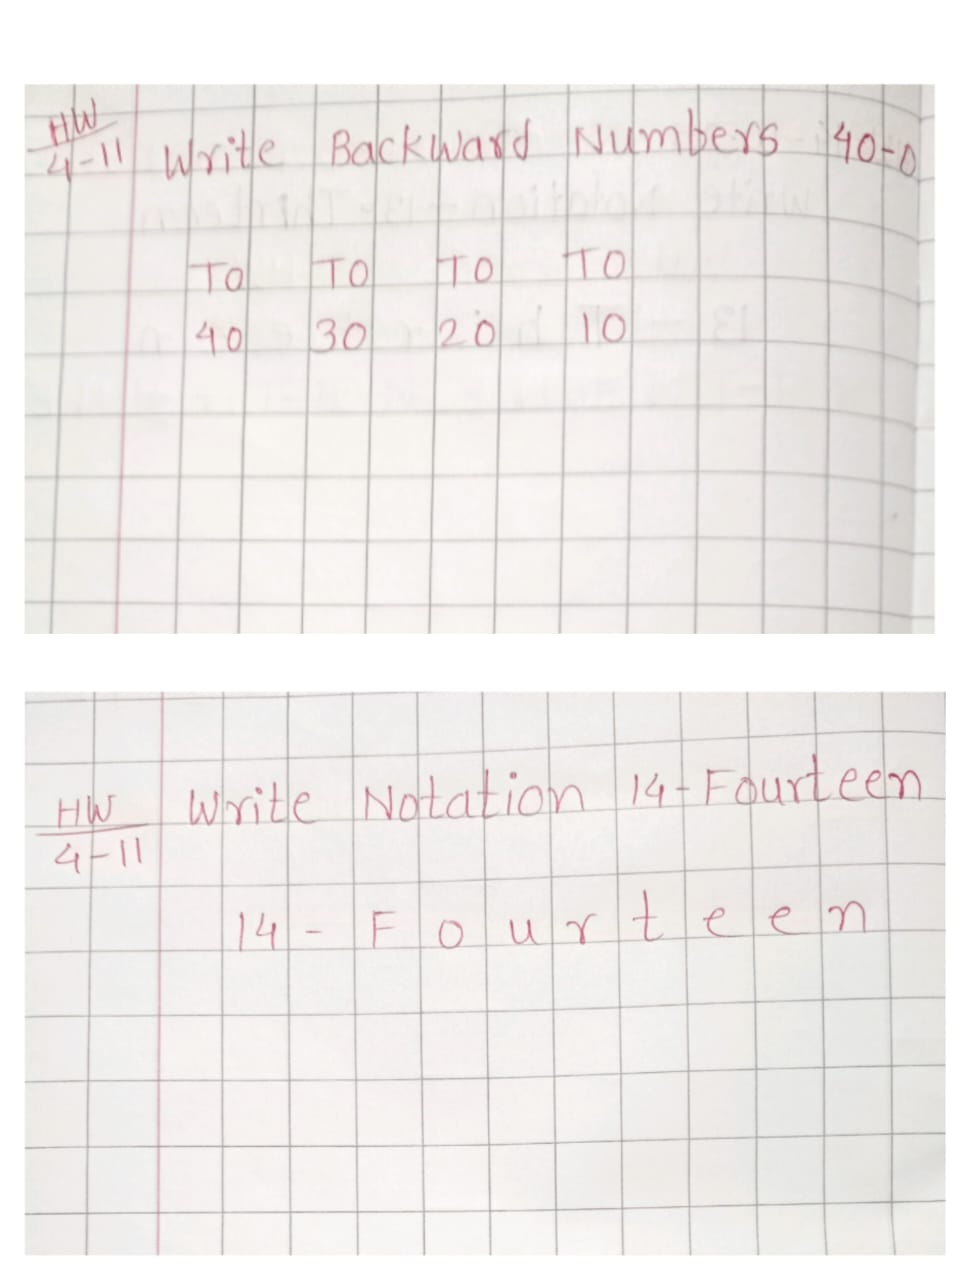 HW
4-11 Write Backward Numbers 40-0
TO TO TO TO
40 30 20 10
HW Write Notation 14-Fourteen
4-11
14 - Fourteen